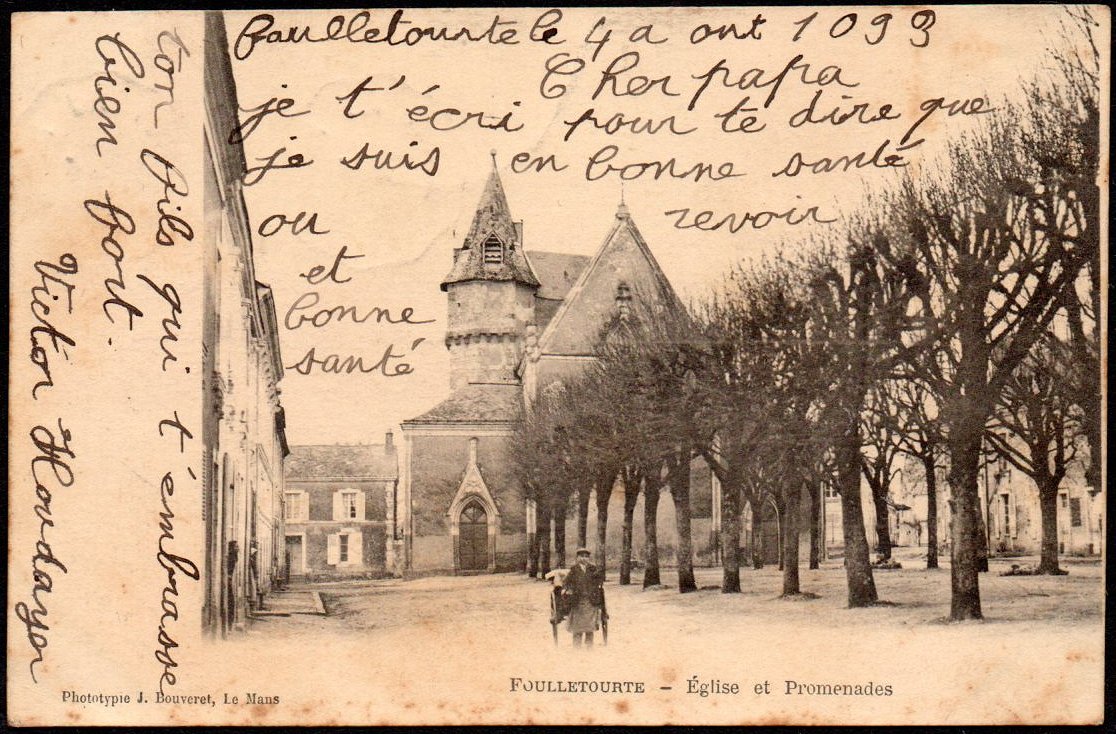 foulletourte le 4 a out 1093
Cher papa
je t'écri pour te dire que
je suis en bonne santé
ou revoir
et
bonne
santé
ton fils qui t'embrasse
bien fort.
Victor Houdayer
Phototypie J. Bouveret, Le Mans
FOULLETOURTE – Église et Promenades